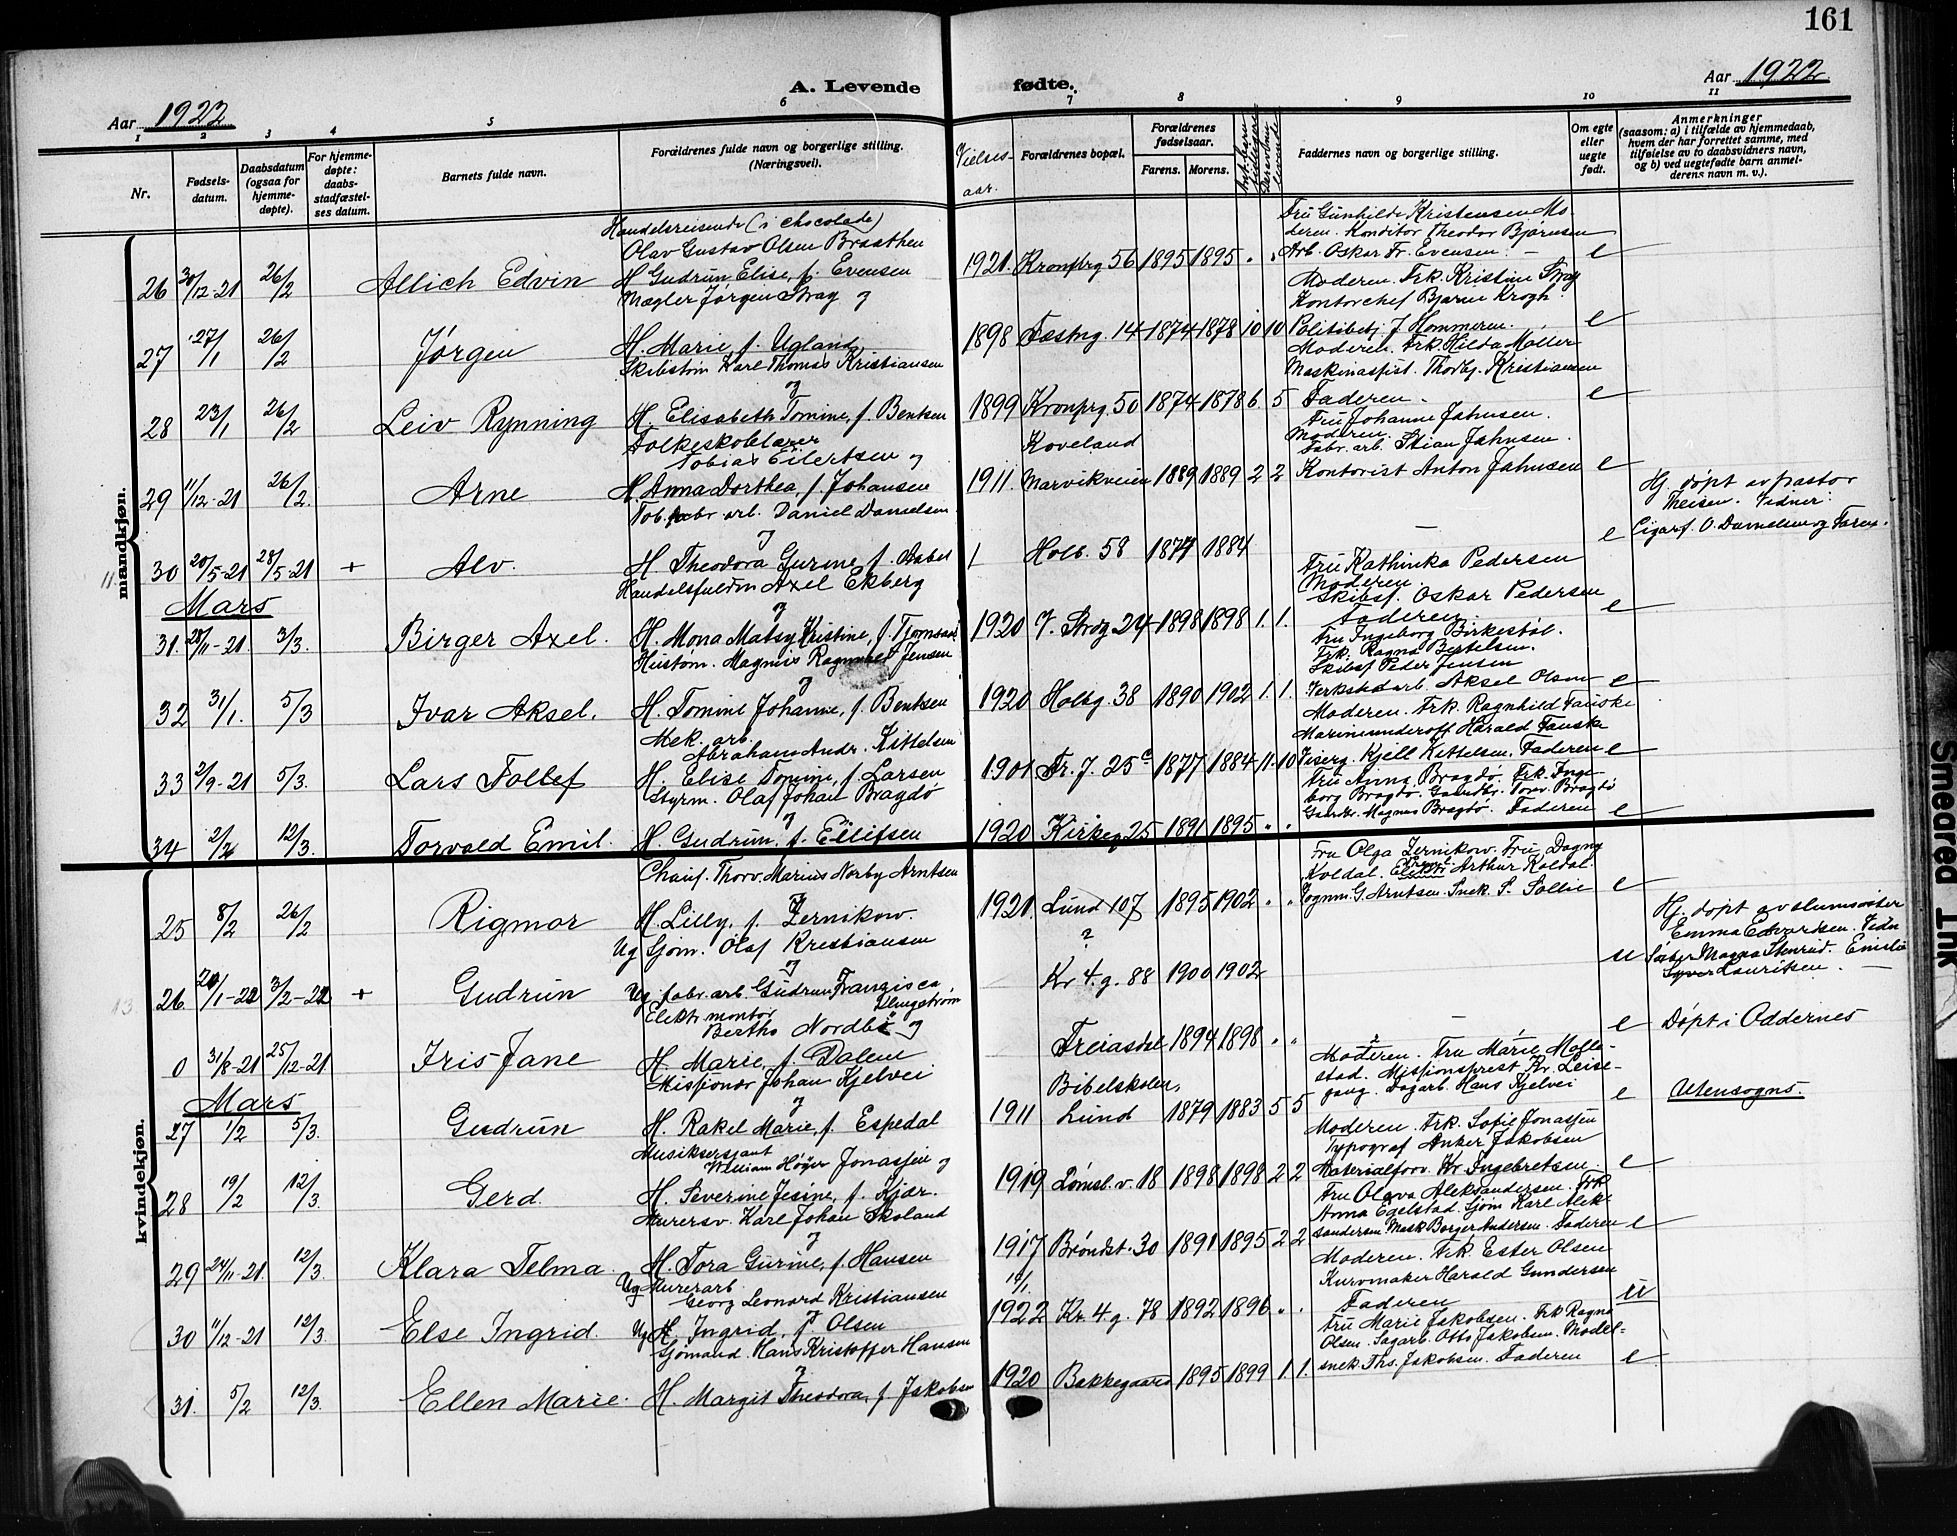 161
A. Levende fødte.
Aar 1922
Aar 1922
1 2 3 4 5 6 7 8 9 10 11
Nr.
Fødsels-
datum.
Daabsdatum
(ogsaa for
hjemme-
døpte).
For hjemme-
døpte:
daabs-
stadfæstel-
ses datum.
Barnets fulde navn.
Forældrenes fulde navn og borgerlige stilling.
(Næringsvei).
Vielses-
aar.
Forældrenes bopæl.
Forældrenes
fødselsaar.
Farens. Morens.
Faddernes navn og borgerlige stilling.
Om egte
eller
uegte
født.
Anmerkninger
(saasom: a) i tilfælde av hjemmedaab,
hvem der har forrettet samme, med
tilføielse av to daabsvidners navn,
og b) ved uegtefødte barn anmel-
derens navn m. v.).
mandkjøn.
Handelsreisende (i chocolade)
Olav Gustav Olsen Braathen
26 30/12-21 26/2 Allich Edvin H. Gudrun Elise, f. Evensen
1921. Kronprg 56 1895 1895 " "
Fru Gunhilde Kristensen Mo-
deren. Konditor Theodor Bjørnsen
Arb. Oskar Fr. Evensen. e
Mægler Jørgen Stray og
27 27/1 26/2 Jørgen H. Marie f. Ugland
1898 Fæstng. 14 1874 1878 10 10
Moderen. Frk. Kristine Stray
Kontorchef Bjarne Krogh.
Politibetj. J. Hommeren. e
Skibstøm Karl Thomas Kristiansen
og
28 23/1 26/2 Leiv Rynning H. Elisabeth Tomine, f. Bentsen
1899 Kronprg. 50 1874 1878 6 5
Moderen. Frk. Hilda Møller
Maskinasist. Thorbj. Kristiansen
Faderen. e
Folkeskolelærer
Tobias Eilertsen og
29 11/12-21 26/2. Arne H. Anna Dorthea, f. Johansen
Koveland
1911. Marvikveien 1889 1889 2 2
Fru Johanne Jahnsen.
Moderen.
Fabr. arb. Stian Jahnsen.
Kontorist Anton Jahnsen e
Tob. fabr arb. Daniel Danielsen
og
30 20/5-21 28/5-21 + Alv. H. Theodora Gurine, f.
Holb. 58 1877 1884 — e
Hj. døpt av pastor
Theisen. Vidner:
Cigarf. O. Danielsen og Faren.
Mars
Handelsfuldm Axel Ekberg
og
31. 28/11-21 3/3. Birger Axel. H. Mona Matsy Kristine, f.
1920 V. Strg 24 1898 1898 1. 1.
Fru Kathinka Pedersen
Moderen.
Skibsf. Oskar Pedersen
Faderen. e
Hustøm. Magnus Ragnvald Jensen
og
32 31/1. 5/3 Ivar Aksel. H. Tomine Johanne, f. Bentsen
1920 Holbg. 38 1890 1902 1. 1.
Fru Ingeborg Birkestøl.
Frk. Ragna Bertelsen.
Skibsf Peder Jensen
Verkstedarb. Aksel Olsen e
Mek. arb.
Abraham Andr. Kittelsen
33 2/9-21 5/3. Lars Tollef H. Elise Tomine, f. Larsen
1901 Fr. J. 25c 1877 1884 11 10
Moderen. Frk. Ragnhild Fauske
Marineunderoff Harald Fauske
Viserg. Kjell Kittelsen. Faderen e
Styrm. Olaf Johan Bragdø
og
34 2/2 12/3. Torvald Emil. H. Gudrun, f. Eilifsen
1920 Kirkeg 25 1891 1895 " "
Fru Anna Bragdø. Frk. Inge-
borg Bragdø. Gaardbr. Torv. Bragdø
Gaardbr. Magnus Bragdø. Faderen e
kvindekjøn.
Chauf. Thorv. Marius Norby Arntsen
og
25 8/2 26/2 Rigmor H. Lilly, f. Zernikow.
1921. Lund 107 1895 1902 " "
Fru Olga Zernikow. Fru Dagny
Koldal. Arthur Koldal.
Vognm. G. Arntsen. Snek. S. Sollie e
Ug Sjøm. Olaf Kristiansen
og
26. 20/1-22 3/2-22 + Gudrun Ug. fabr. arb. Gudrun Francisca
?
Kr 4. g. 88 1900 1902 u
Hj. døpt av slumsøster
Emma Edvardsen. Vidn
Søster Magna Stenrud. Emilie
Lauritsen.
Elektr montør
Berthe Nordbø og
0 31/8-21 25/12-21 Iris Jane H. Marie, f. Dalene
Freiasdal 1894 1898 " " — e
Døpt i Oddernes
Mars
Misjonær Johan Kjelvei
og
27 1/2 5/3. Gudrun H. Rakel Marie, f. Espedal
Bibelskolen,
1911 Lund 1879 1883 5 5
Moderen. Fru Marie Molle-
stad. Misjonsprest Kr. Leise-
gang. Dagarb. Hans Kjelvei e
Utensogns.
Musiksersjant
William Høyer Jonassen og
28 19/2 12/3 Gerd. H. Severine Jesine, f. Kjær.
1919 Tømst. v. 18 1898 1898 2 2
Moderen. Frk. Sofie Jonassen
Typograf Anker Jakobsen
Materialforv. Kr Ingebretsen e
Murersv. Karl Johan Skoland
og
29 24/11-21. 12/3. Klara Telma. H. Tora Gurine, f. Hansen
1917 Brøndst. 30 1891 1895 2 2
Fru Olava Aleksandersen. Frk
Anna Egelstad. Sjøm Karl Alek-
sandersen Mask Borger Andersen. Faderen e
Ug Murerarb
Georg Leonard Kristiansen
og
30 11/12-21 12/3. Else Ingrid. Ug H. Ingrid, f. Olsen
1922 Kr. 4. g. 78 1892 1896 " "
Moderen. Frk. Ester Olsen
Kurvmaker Harald Gundersen
Faderen u
Sjømand. Hans Kristoffer Hansen
og
31. 5/2 12/3. Ellen Marie. H. Margit Theodora, f. Jakobsen
1920 Bakkegaard 1895 1899 1. 1.
Fru Marie Jakobsen. Frk Ragna
Olsen. Sagarb. Otto Jakobsen. Model-
snek. Ths. Jakobsen. Faderen e